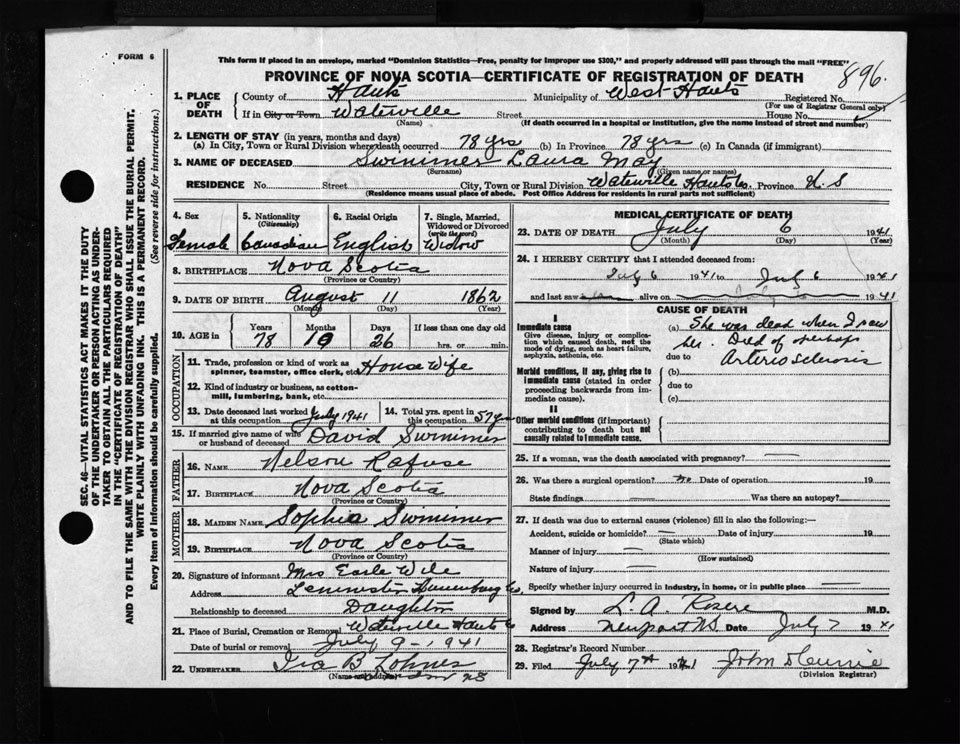 FORM 6
This form if placed in an envelope, marked "Dominion Statistics—Free, penalty for improper use $300," and properly addressed will pass through the mail "FREE"
PROVINCE OF NOVA SCOTIA—CERTIFICATE OF REGISTRATION OF DEATH
896
1. PLACE OF DEATH
County of Hants Municipality of West Hants Registered No.
(For use of Registrar General only)
If in City or Town Waterville Street House No.
(Name) (If death occurred in a hospital or institution, give the name instead of street and number)
2. LENGTH OF STAY (in years, months and days)
(a) In City, Town or Rural Division where death occurred 78 yrs (b) In Province 78 yrs (c) In Canada (if immigrant)
3. NAME OF DECEASED Swinimer Laura May
(Surname) (Given name or names)
RESIDENCE No. Street City, Town or Rural Division Waterville Hants Co. Province N.S
(Residence means usual place of abode. Post Office Address for residents in rural parts not sufficient)
4. Sex 5. Nationality (Citizenship) 6. Racial Origin 7. Single, Married, Widowed or Divorced (write the word)
Female Canadian English Widow
8. BIRTHPLACE Nova Scotia
(Province or Country)
9. DATE OF BIRTH August 11 1862
(Month) (Day) (Year)
10. AGE in Years Months Days If less than one day old
78 10 26 hrs. or min.
OCCUPATION
11. Trade, profession or kind of work as spinner, teamster, office clerk, etc. House Wife
12. Kind of industry or business, as cotton-mill, lumbering, bank, etc.
13. Date deceased last worked at this occupation July 1941 14. Total yrs. spent in this occupation 57 yrs
15. If married give name of wife or husband of deceased David Swinimer
FATHER
16. NAME Nelson Rafuse
17. BIRTHPLACE Nova Scotia
(Province or Country)
MOTHER
18. MAIDEN NAME Sophia Swinimer
19. BIRTHPLACE Nova Scotia
(Province or Country)
20. Signature of informant Mrs Earle Wile
Address Leminster Lunenburg Co.
Relationship to deceased Daughter
21. Place of Burial, Cremation or Removal Waterville Hants Co
Date of burial or removal July 9 - 1941
22. UNDERTAKER Ira B Lohnes
(Name and address) NS
MEDICAL CERTIFICATE OF DEATH
23. DATE OF DEATH July 6 1941
(Month) (Day) (Year)
24. I HEREBY CERTIFY that I attended deceased from:
July 6 1941 to July 6 1941
and last saw alive on 1941
CAUSE OF DEATH
I
Immediate cause
Give disease, injury or complication which caused death, not the mode of dying, such as heart failure, asphyxia, asthenia, etc.
(a) She was dead when I saw
her. Died of perhaps
due to Arterio Sclerosis
Morbid conditions, if any, giving rise to immediate cause (stated in order proceeding backwards from immediate cause).
(b)
due to
(c)
II
Other morbid conditions (if important) contributing to death but not causally related to immediate cause.
25. If a woman, was the death associated with pregnancy?
26. Was there a surgical operation? no Date of operation 19
State findings Was there an autopsy?
27. If death was due to external causes (violence) fill in also the following:—
Accident, suicide or homicide? Date of injury 19
(State which)
Manner of injury
(How sustained)
Nature of injury
Specify whether injury occurred in industry, in home, or in public place
Signed by L. A. M.D.
Address Newport N.S. Date July 7 1941
28. Registrar's Record Number
29. Filed July 7th 1941 John
(Division Registrar)
SEC. 46—VITAL STATISTICS ACT MAKES IT THE DUTY
OF THE UNDERTAKER OR PERSON ACTING AS UNDER-
TAKER TO OBTAIN ALL THE PARTICULARS REQUIRED
IN THE "CERTIFICATE OF REGISTRATION OF DEATH"
AND TO FILE THE SAME WITH THE DIVISION REGISTRAR WHO SHALL ISSUE THE BURIAL PERMIT.
WRITE PLAINLY WITH UNFADING INK. THIS IS A PERMANENT RECORD.
Every item of information should be carefully supplied. (See reverse side for instructions.)